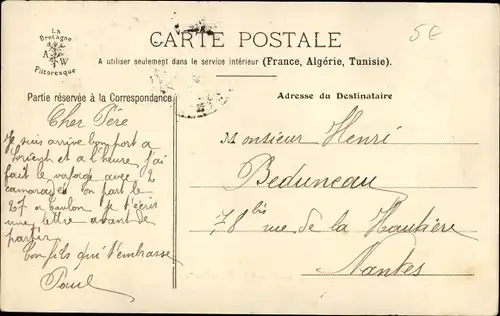 La
Bretagne
A W
Pittoresque
CARTE POSTALE
5€
A utiliser seulement dans le service intérieur (France, Algérie, Tunisie).
Partie réservée à la Correspondance
Adresse du Destinataire
Cher Père
Je suis arrivé bon port a
Lorient et a l'heure j'ai
fait le voyage avec 2
camarades on part le
27 a je t'écris
une lettre avant de
partir
ton fils qui t'embrasse
Paul
Monsieur Henri
Beduneau
78 bis rue de la Hautière
Nantes